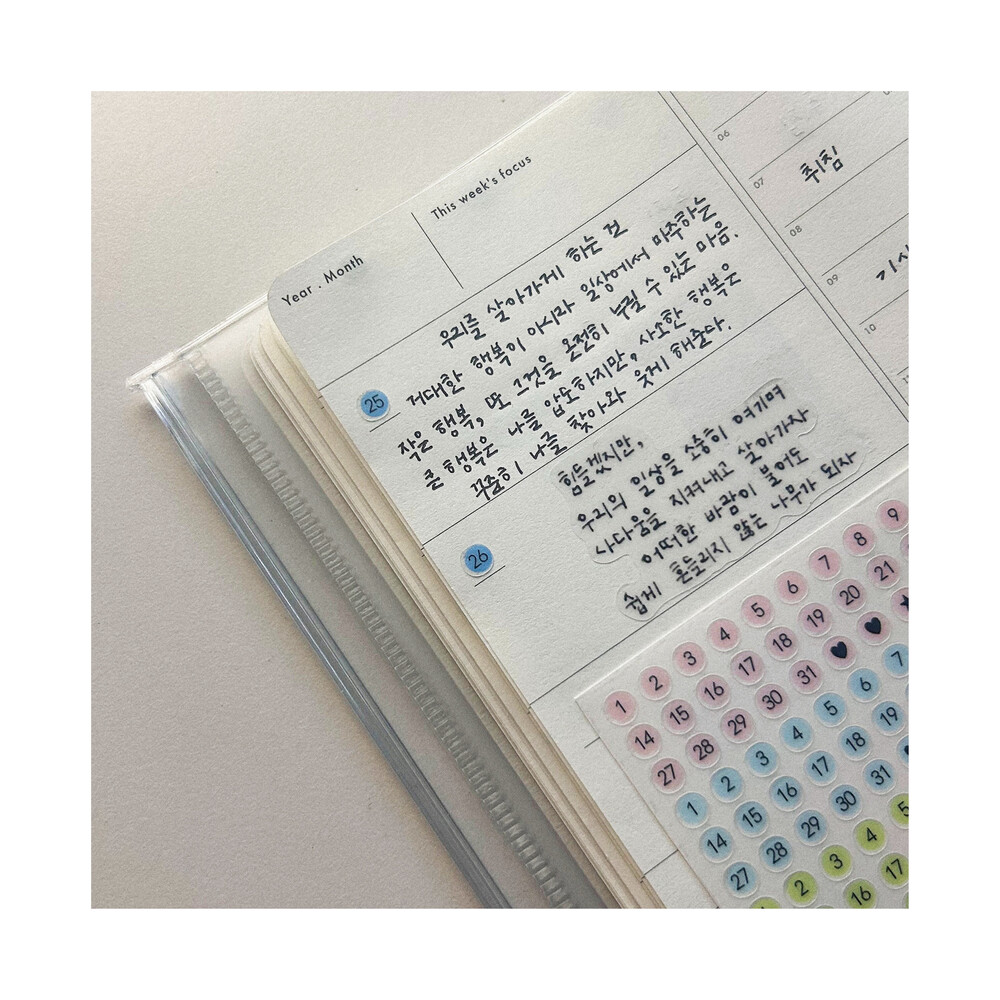 Year . Month
This week's focus
우리를 살아가게 하는 건
거대한 행복이 아니라 일상에서 마주하는
작은 행복, 또 그것을 온전히 누릴 수 있는 마음.
큰 행복은 나를 압도하지만, 사소한 행복은
꾸준히 나를 찾아와 웃게 해준다.
25
힘들겠지만,
우리의 일상을 소중히 여기며
나다움을 지켜내고 살아가자
어떠한 바람이 불어도
쉽게 흔들리지 않는 나무가 되자
26
06
07 취침
08
09 기상
10
1 2 3 4 5 6 7 8 9
14 15 16 17 18 19 20 21
27 28 29 30 31
1 2 3 4 5 6 7
14 15 16 17 18 19
27 28 29 30 31
2 3 4 5
16 17